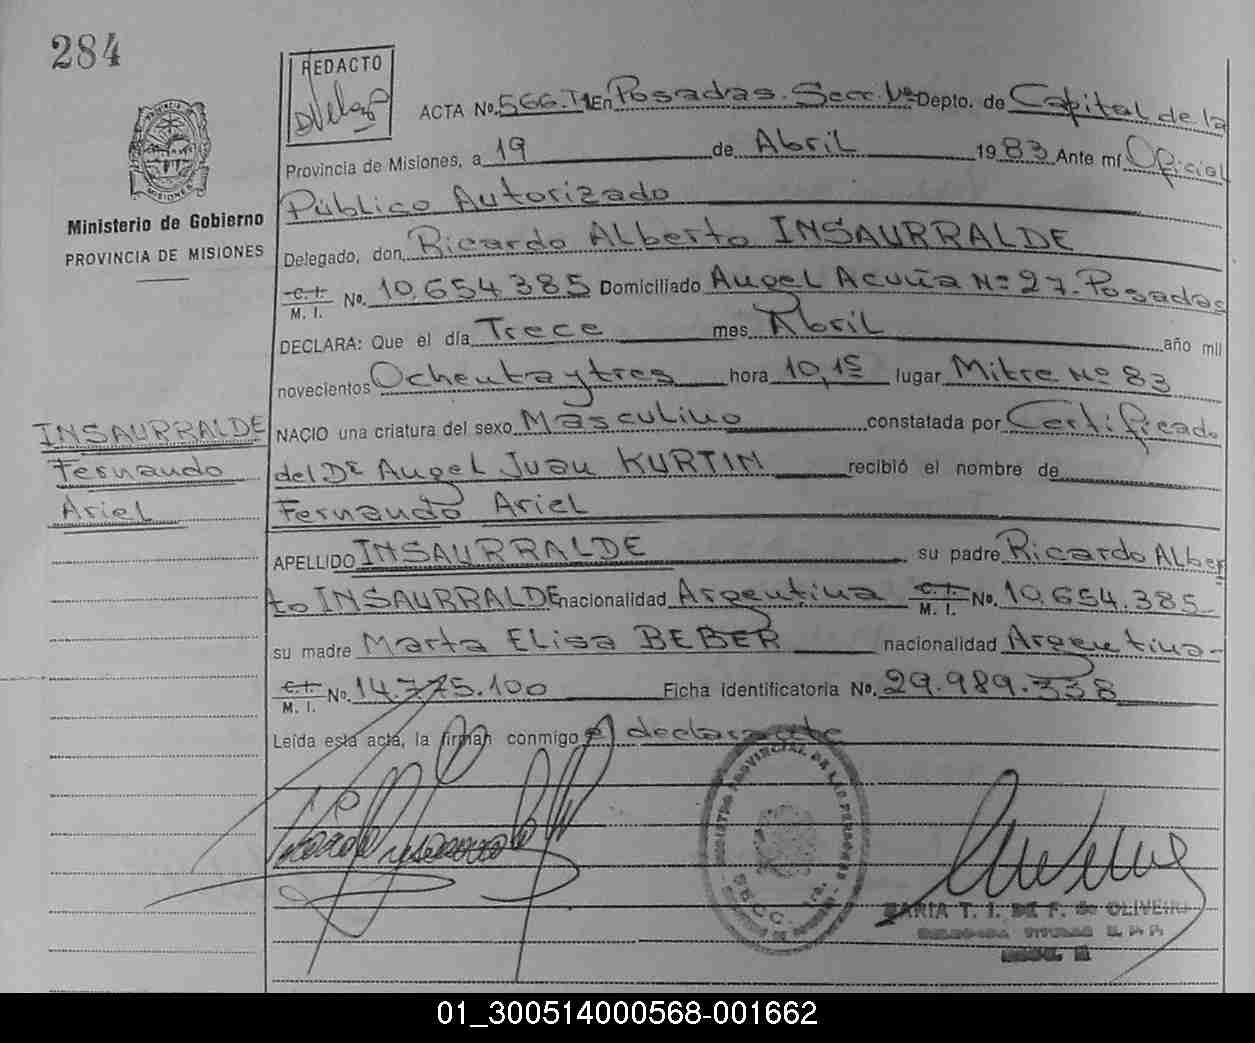 284
REDACTO
MISIONES
Ministerio de Gobierno
PROVINCIA DE MISIONES
ACTA No. 566. T1 En Posadas. Secc. 1ª Depto. de Capital de la
Provincia de Misiones, a 19 de Abril 1983 Ante mí Oficial
Público Autorizado
Delegado, don Ricardo Alberto INSAURRALDE
C. I. M. I. No. 10.654.385 Domiciliado Angel Acuña Nº 27. Posadas
DECLARA: Que el día Trece mes Abril año mil
novecientos Ochentaytres hora 10,15 lugar Mitre Nº 83
NACIO una criatura del sexo Masculino constatada por Certificado
del Dr Angel Juan KURTIM recibió el nombre de
Fernando Ariel
INSAURRALDE
Fernando
Ariel
APELLIDO INSAURRALDE su padre Ricardo Alber
to INSAURRALDE nacionalidad Argentina C. I. M. I. No. 10.654.385
su madre Marta Elisa BEBER nacionalidad Argentina-
C. I. M. I. No. 14.775.100 Ficha identificatoria No. 29.989.338
Leída esta acta, la firman conmigo el declarante
REGISTRO PROVINCIAL DE LAS PERSONAS
SECC. 1ra.
MARIA T. I. DE F. de OLIVEIRA
DELEGADA TITULAR R. P. P.
01_300514000568-001662